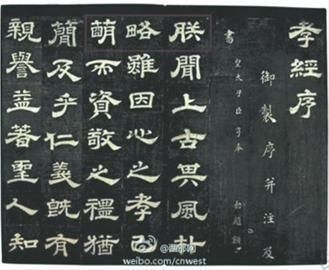 孝經序
御製序并注及
書 皇太子臣亨奉 勑題額
朕聞上古其風朴
略雖因心之孝已
萌而資敬之禮猶
簡及乎仁義既有
親譽益著聖人知
@西部网
weibo.com/cnwest